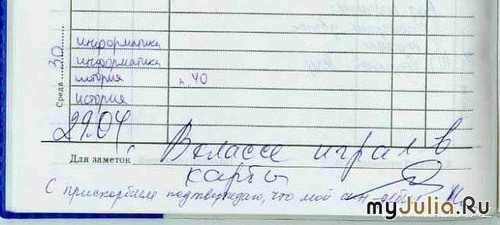 Среда 30
информатика
информатика
история п. 40
история
29.04.
Для заметок В классе играл в
карты
С прискорбием подтверждаю, что мой сын
myJulia.Ru